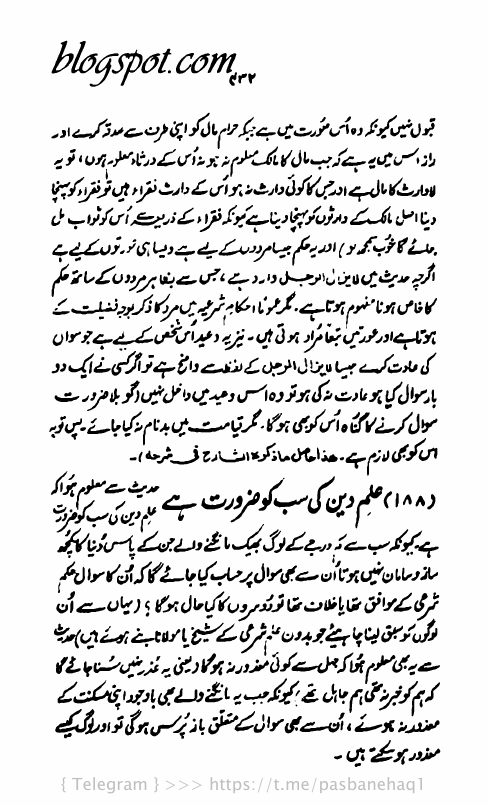 blogspot.com
۴۳۲
قبول نہیں کیونکہ وہ اُس صورت میں ہے جبکہ حرام مال کو اپنی طرف سے صدقہ کرے اور
راز اس میں یہ ہے کہ جب مال کا مالک معلوم نہ ہو نہ اُس کے ورثاء معلوم ہوں، تو یہ
لاوارث کا مال ہے اور جس کا کوئی وارث نہ ہو اُس کے وارث فقراء ہیں تو فقراء کو پہنچا
دینا اصل مالک کے وارثوں کو پہنچا دینا ہے کیونکہ فقراء کے ذریعہ سے اُس کو ثواب مل
جائے گا خوب سمجھ لو) اور یہ حکم جیسا مردوں کے لیے ہے ویسا ہی عورتوں کے لیے ہے
اگرچہ حدیث میں لا یزال الرجل وارد ہے، جس سے بظاہر مردوں کے ساتھ حکم
کا خاص ہونا مفہوم ہوتا ہے۔ مگر عموماً احکام شرعیہ میں مرد کا ذکر بوجہ فضیلت کے
ہوتا ہے اور عورتیں تبعاً مراد ہوتی ہیں۔ نیز یہ وعید اُس شخص کے لیے ہے جو سوال
کی عادت کرے جیسا لا یزال الرجل کے لفظ سے واضح ہے تو اگر کسی نے ایک دو
بار سوال کیا ہو عادت نہ کی ہو تو وہ اس وعید میں داخل نہیں (گو بلا ضرورت
سوال کرنے کا گناہ اُس کو بھی ہوگا۔ مگر قیامت میں بدنام نہ کیا جائے۔ پس توبہ
اس کو بھی لازم ہے۔ ھذا حاصل ماذکرہ الشارح فی شرحہ)۔
(۱۸۸) علمِ دین کی سب کو ضرورت ہے
حدیث سے معلوم ہوا کہ
علم دین کی سب کو ضرورت
ہے کیونکہ سب سے کم درجے کے لوگ بھیک مانگنے والے جن کے پاس دُنیا کا کچھ
ساز و سامان نہیں ہوتا اُن سے بھی سوال پر حساب کیا جائے گا کہ اُن کا سوال حکم
شرعی کے موافق تھا یا خلاف تھا تو دوسروں کا کیا حال ہوگا؟ (یہاں سے اُن
لوگوں کو سبق لینا چاہیئے جو بدون علم شرعی کے شیخ یا مولانا بنے ہوئے ہیں) حدیث
سے یہ بھی معلوم ہوا کہ جہل سے کوئی معذور نہ ہوگا (یعنی یہ عذر نہیں سُنا جائے گا
کہ ہم کو خبر نہ تھی ہم جاہل تھے) کیونکہ جب یہ مانگنے والے بھی باوجود اپنی مسکنت کے
معذور نہ ہوئے، اُن سے بھی سوال کے متعلق باز پُرس ہوگی تو اور لوگ کیسے
معذور ہو سکتے ہیں۔
{ Telegram } >>> https://t.me/pasbanehaq1